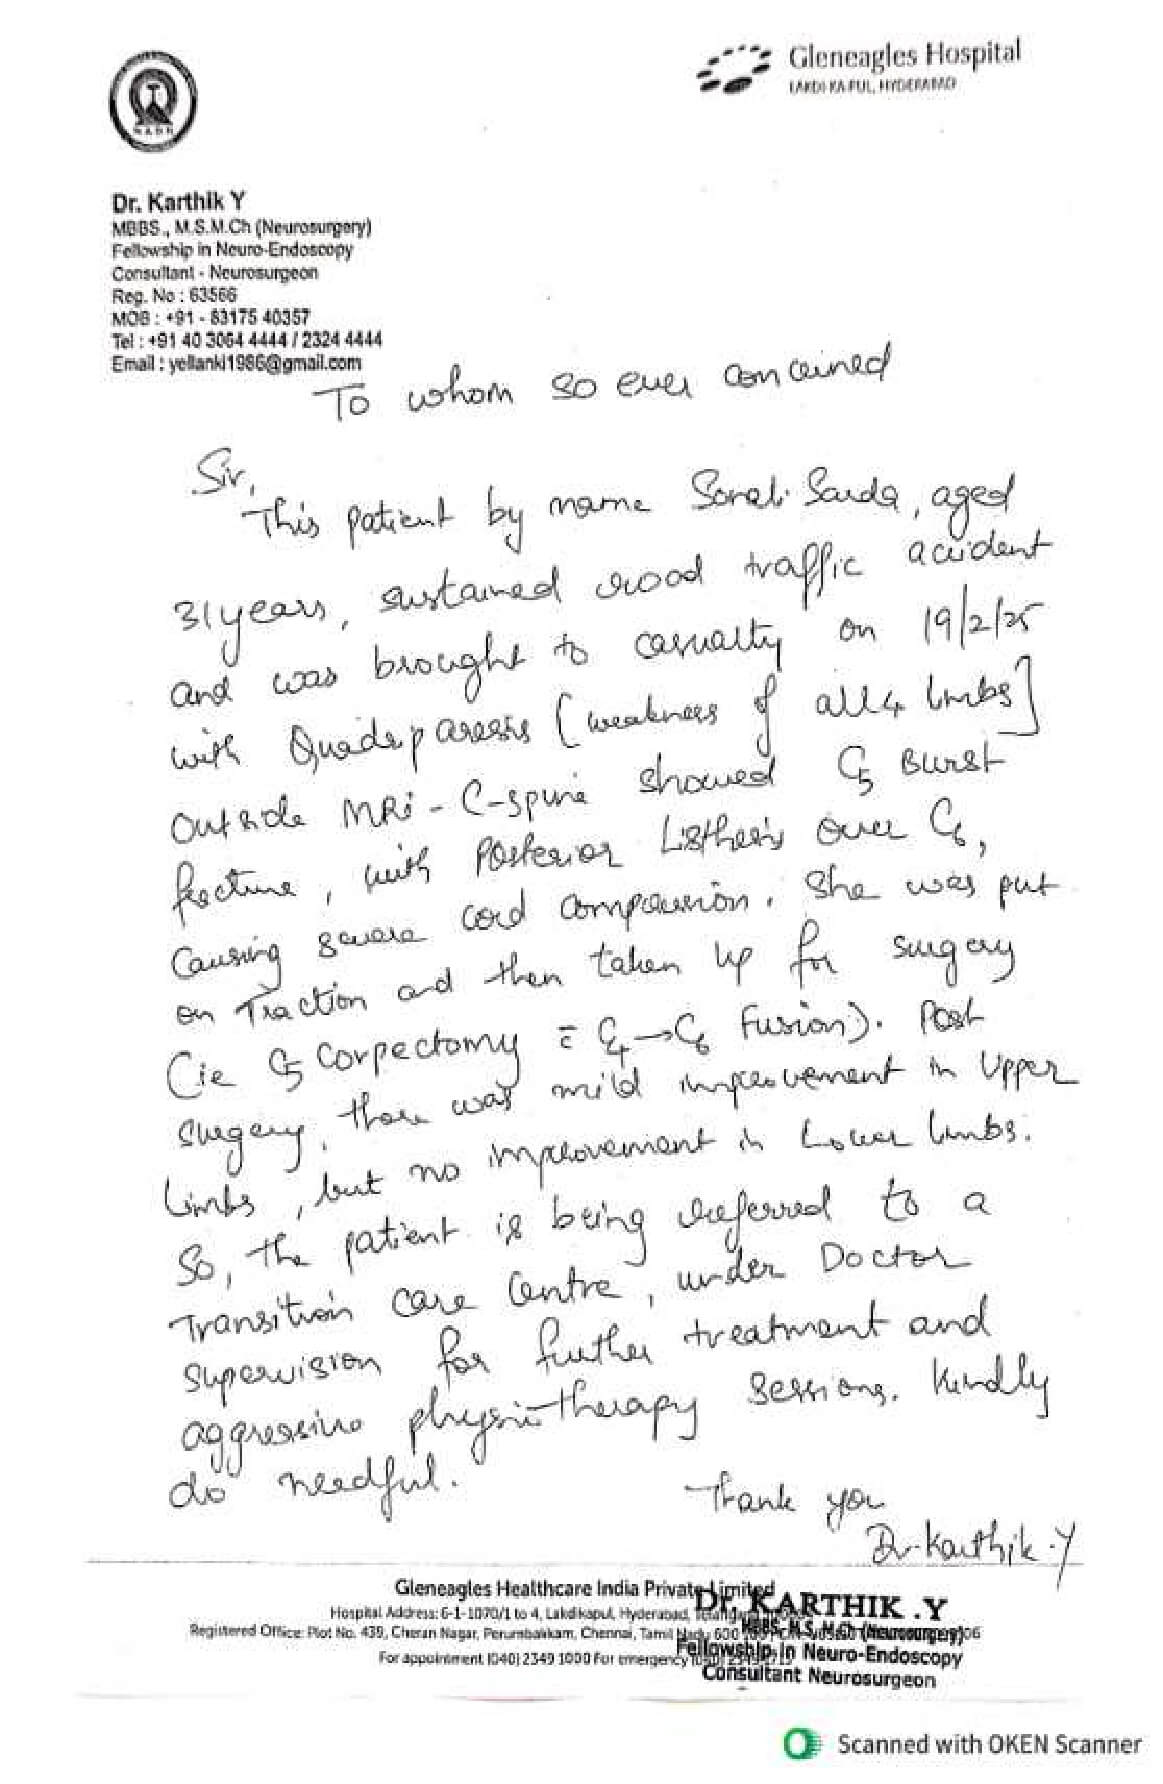 NABH
Gleneagles Hospital
LAKDI KA PUL, HYDERABAD
Dr. Karthik Y
MBBS., M.S.M.Ch (Neurosurgery)
Fellowship in Neuro-Endoscopy
Consultant - Neurosurgeon
Reg. No : 63566
MOB : +91 - 83175 40357
Tel : +91 40 3064 4444 / 2324 4444
Email : yellanki1986@gmail.com
To whom so ever concerned
Sir,
This patient by name Sonali Sarda, aged
31 years, sustained road traffic accident
and was brought to casualty on 19/2/25
with Quadriparesis [weakness of all 4 limbs]
Outside MRI - C-spine showed C5 Burst
fracture, with Posterior Listhesis over C6,
causing severe cord compression. She was put
on Traction and then taken up for surgery
(ie C5 corpectomy c̄ C4→C6 Fusion). Post
surgery, there was mild improvement in Upper
limbs, but no improvement in Lower limbs.
So, the patient is being referred to a
Transition care Centre, under Doctor
supervision for further treatment and
aggressive physiotherapy sessions. Kindly
do needful.
Thank you
Dr. Karthik.Y
Gleneagles Healthcare India Private Limited
Hospital Address: 6-1-1070/1 to 4, Lakdikapul, Hyderabad, Telangana
Registered Office: Plot No. 439, Cheran Nagar, Perumbakkam, Chennai, Tamil Nadu 600
For appointment (040) 2349 1000 For emergency
Dr. KARTHIK .Y
MBBS, M.S, M.Ch (Neurosurgery)
Fellowship in Neuro-Endoscopy
Consultant Neurosurgeon
Scanned with OKEN Scanner